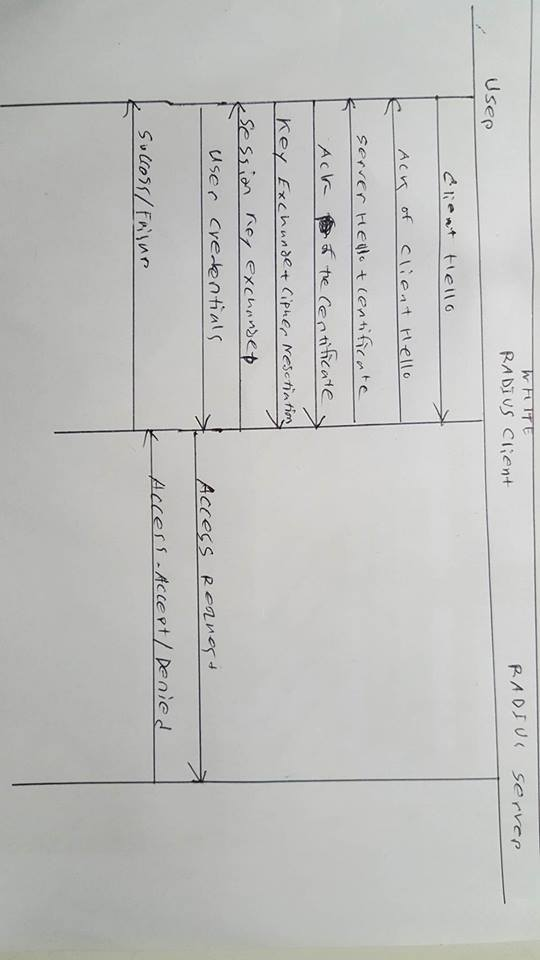 User
WHITE
RADIUS Client
RADIUS server
Client Hello
Ack of Client Hello
Server Hello + Certificate
Ack of the Certificate
Key Exchange + Cipher Negotiation
Session Key exchanged
User Credentials
Access Request
Access-Accept/Denied
Success/Failure